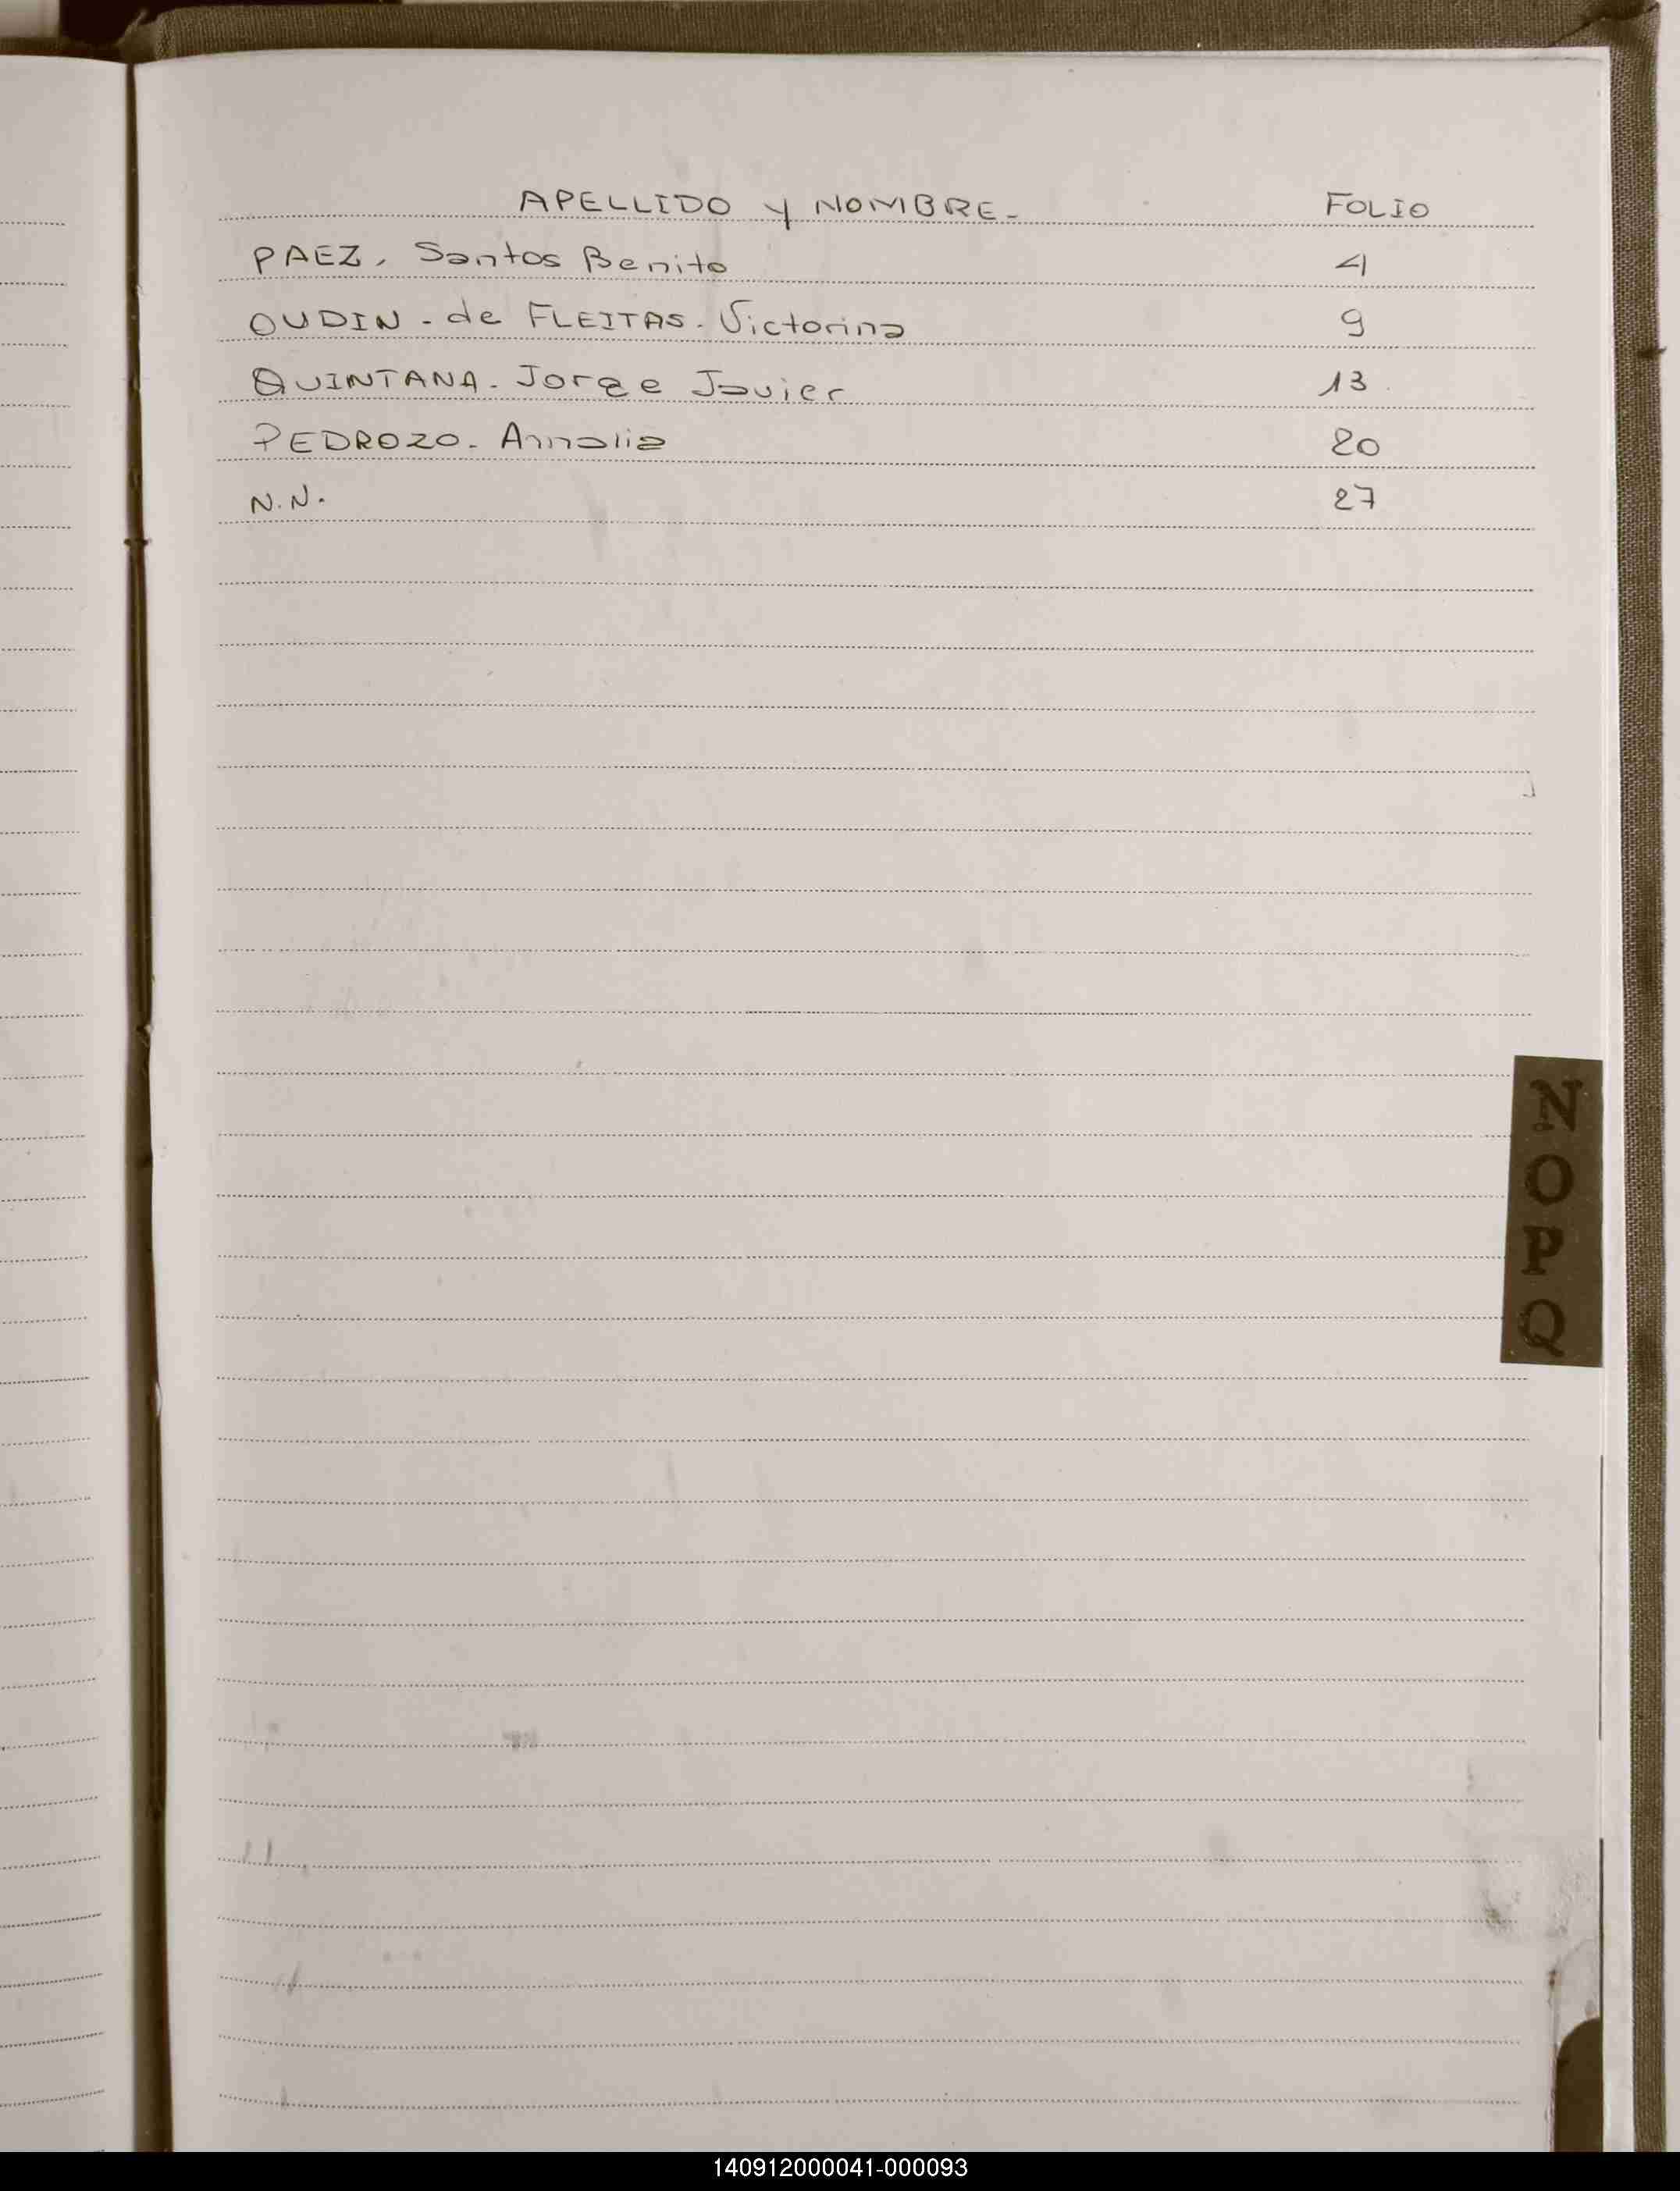 APELLIDO y NOMBRE. FOLIO
PAEZ. Santos Benito 4
OUDIN - de FLEITAS. Victorina 9
QUINTANA. Jorge Javier 13
PEDROZO. Amalia 20
N.N. 27
N
O
P
Q
140912000041-000093